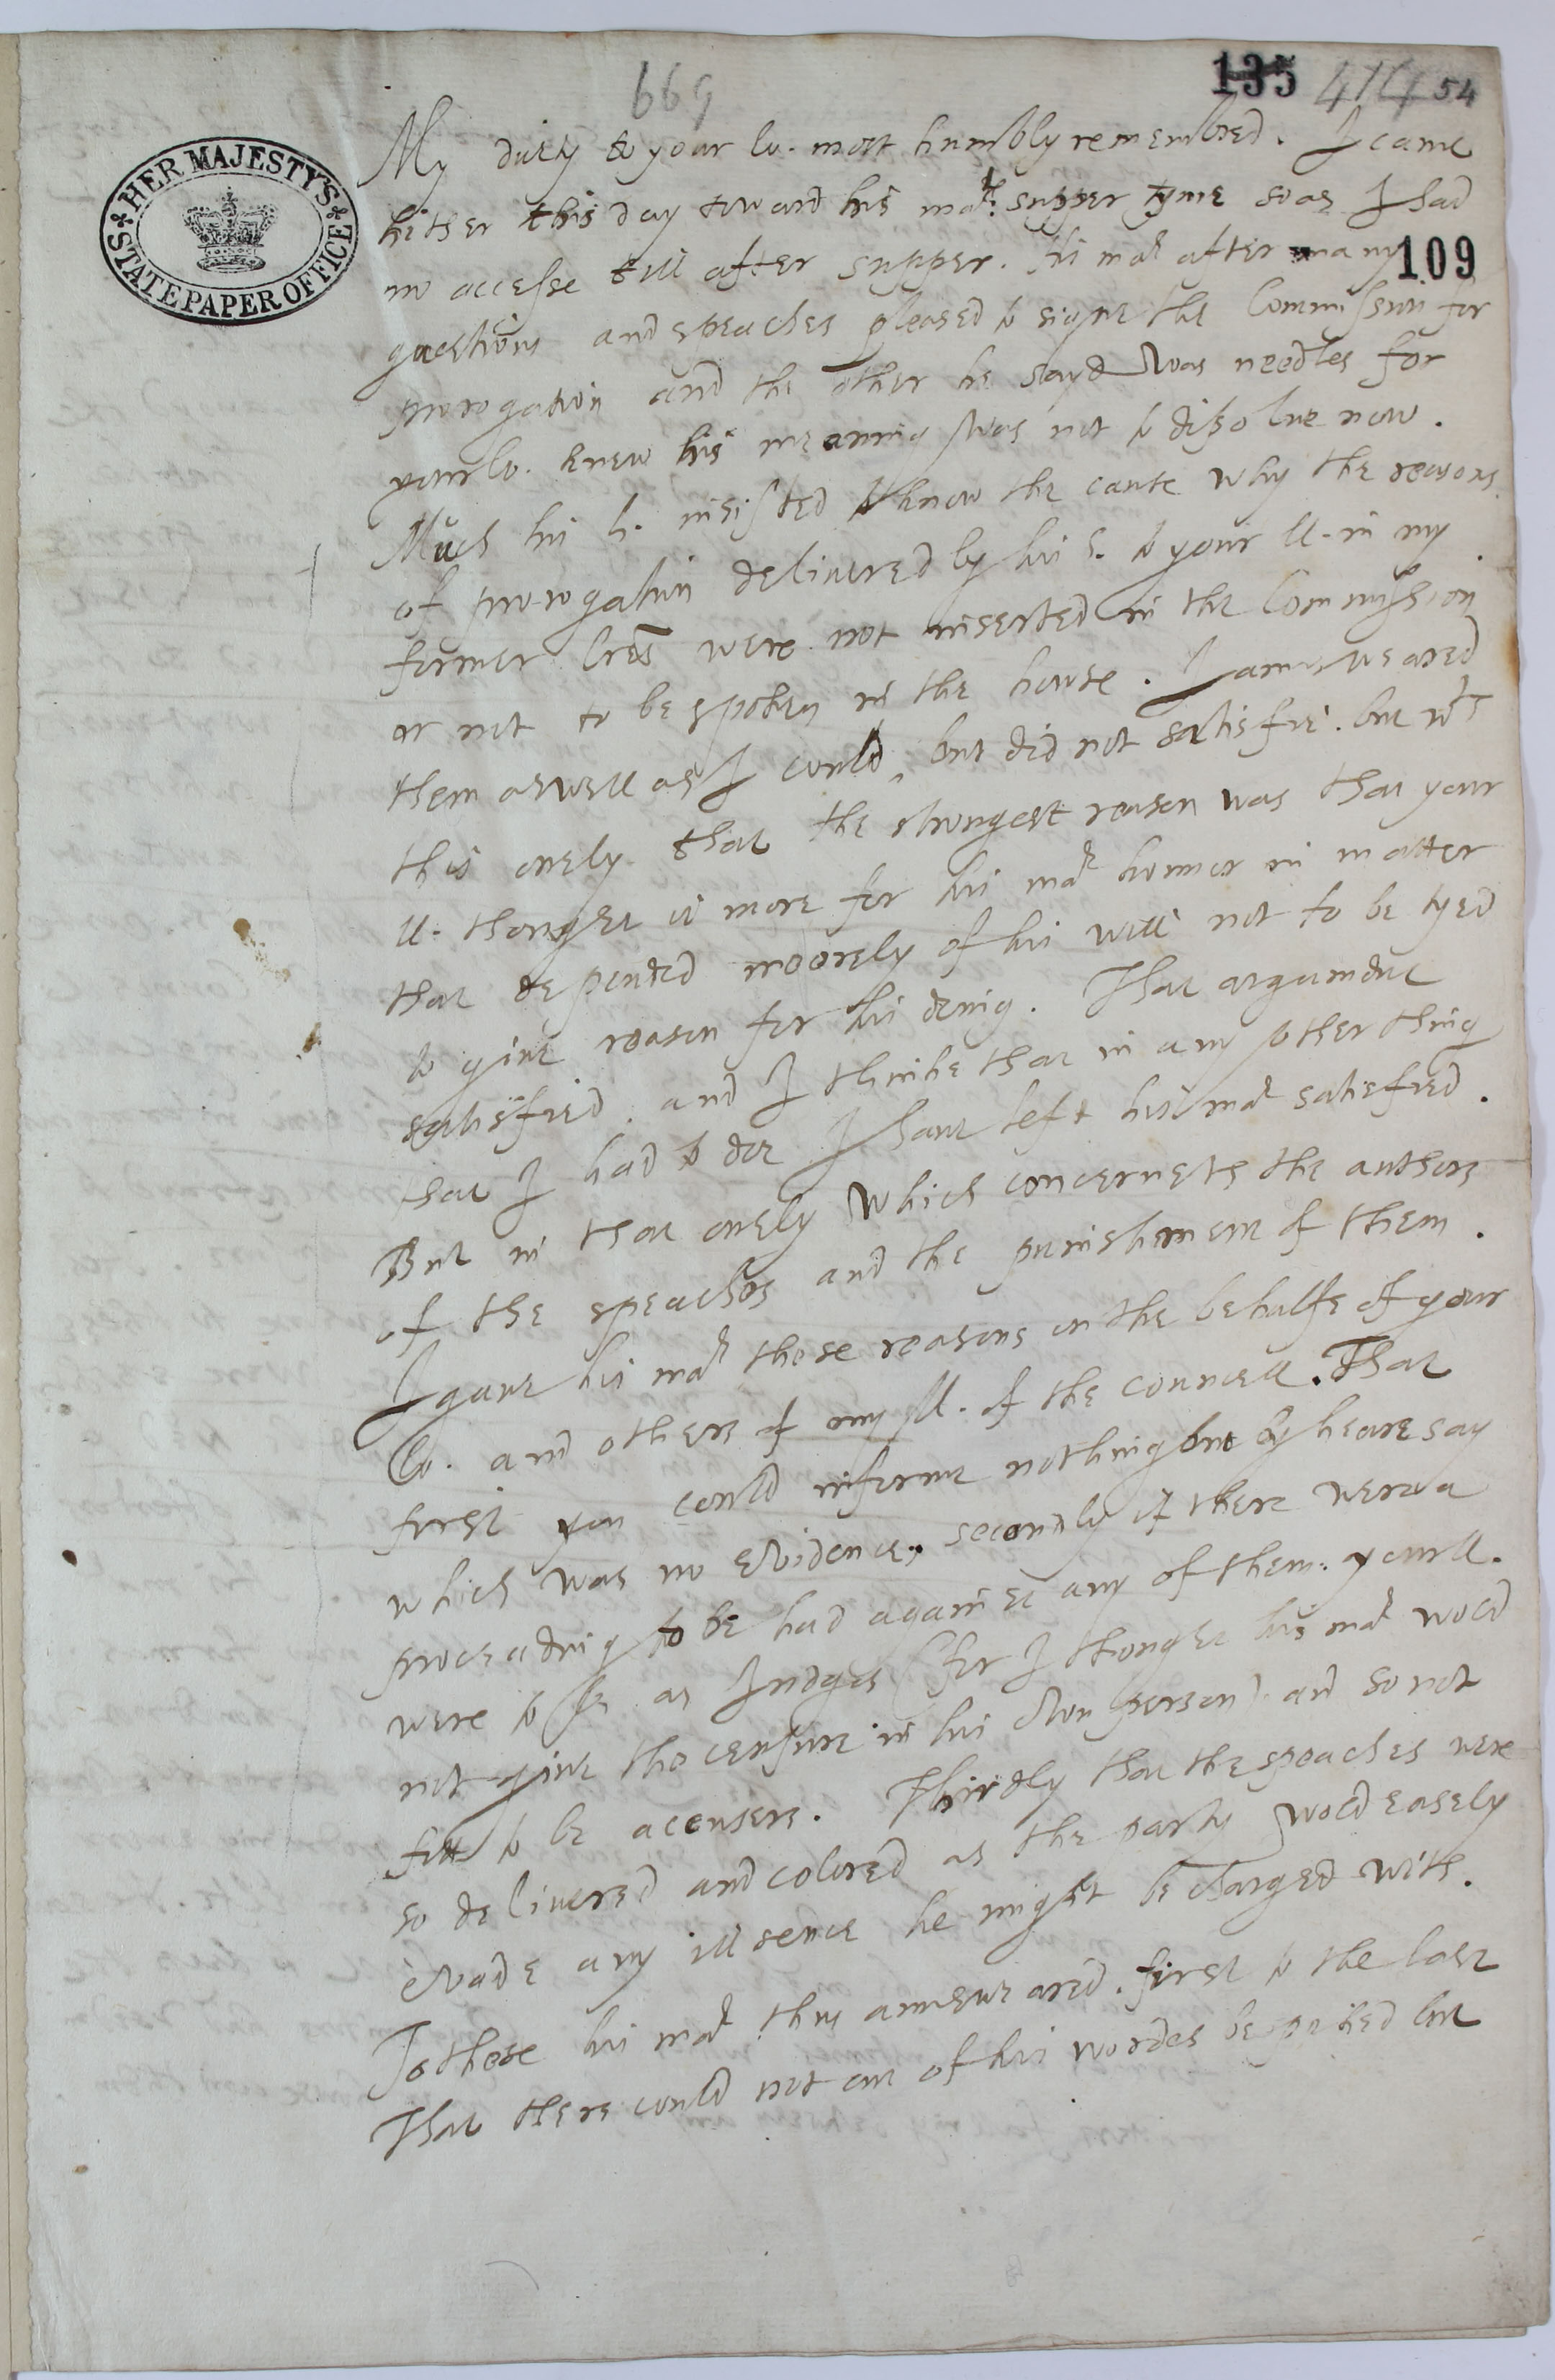 669
135 414 54
HER MAJESTY'S STATE PAPER OFFICE
109
My duty to your lo. most humbly remembred. I came
hither this day toward his matie supper tyme so as I had
no accesse till after supper. his matie after many
questions and speaches pleased to signe the Commission for
prorogation and the other he sayd was needles for
your lo. knew his meaning was not to dissolve now.
Much his h. insisted to know the cause why the reasons
of prorogation delivered by his h. to your ll. in my
former lres were not inserted in the Commission
or not to be spoken in the house. I answeared
them aswell as I could, but did not satisfie. but wth
this onely that the strongest reason was that your
ll. thought it more for his matie honnor in matter
that depended meerely of his will not to be tyed
to give reason for his doing. That argument
satisfied. and I thinke that in any other thing
that I had to doe I have left his matie satisfied.
But in that onely which concerneth the authors
of the speaches and the punishment of them.
I gave his matie these reasons in the behalfe of your
lo. and others of my ll. of the councell. That
first you could informe nothing but by hearesay
which was no evidence, secondly if there were a
proceading to be had against any of them. your ll.
were to be as Judges (for I thought his matie wold
not give the censure in his own person) and so not
fitt to be accusers. Thirdly that the speaches were
so delivered and colored as the party wold easely
evade any ill sence he might be charged with.
To these his matie thus answeared. first to the last
That there could not one of his wordes be picked but